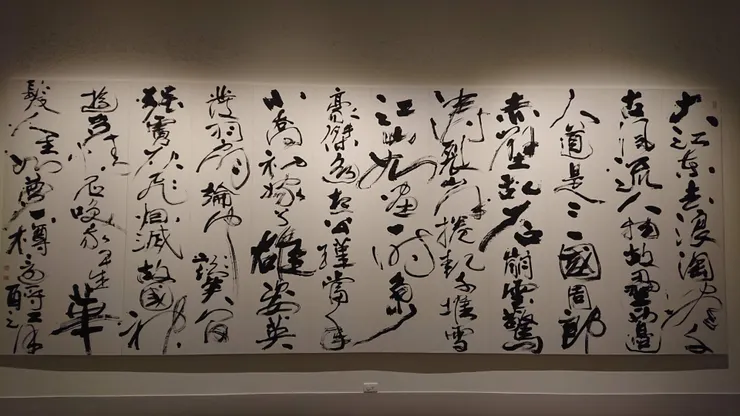 大江東去浪淘盡千
古風流人物故壘西邊
人道是三國周郎
赤壁乱石崩雲驚
濤裂岸捲起千堆雪
江山如畫一時多少
豪傑遙想公瑾當年
小喬初嫁了雄姿英
發羽扇綸巾談笑間
強虜灰飛烟滅故國神
遊多情應笑我早生華
髮人生如夢一樽還酹江月